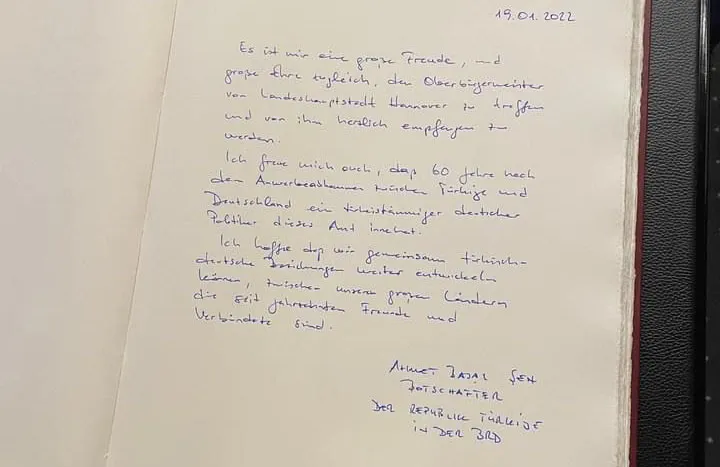 19.01.2022
Es ist mir eine große Freude, und
große Ehre zugleich, den Oberbürgermeister
von Landeshauptstadt Hannover zu treffen
und von ihm herzlich empfangen zu
werden.
Ich freue mich auch, daß 60 Jahre nach
dem Anwerbeabkommen zwischen Türkiye und
Deutschland ein türkeistämmiger deutscher
Politiker dieses Amt innehat.
Ich hoffe daß wir gemeinsam türkisch-
deutsche Beziehungen weiter entwickeln
können, zwischen unseren großen Ländern
die seit Jahrzehnten Freunde und
Verbündete sind.
AHMET BAŞAR ŞEN
BOTSCHAFTER
DER REPUBLIK TÜRKIYE
IN DER BRD